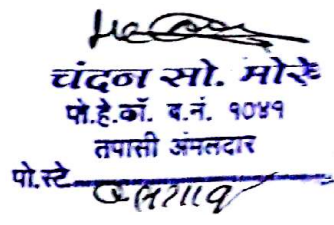 चंदन सो. मोरे
पो.हे.कॉ. ब.नं. १०४१
तपासी अंमलदार
पो.स्टे.